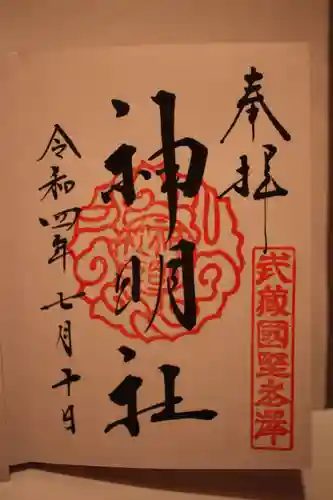 奉拝
武蔵國
神明社
令和四年七月十日